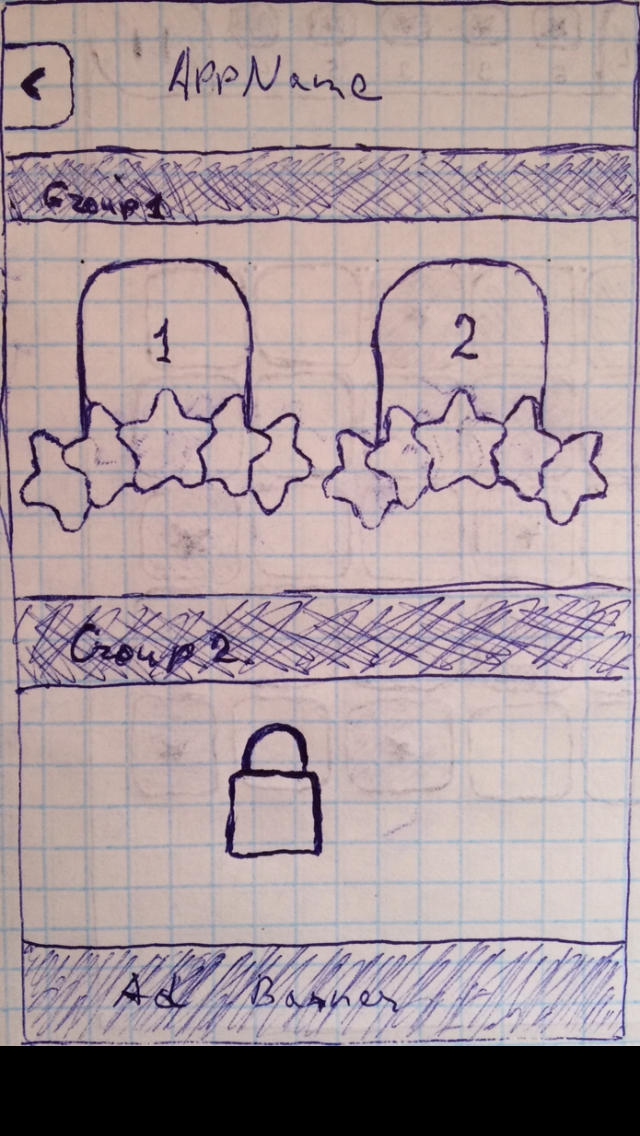 AppName
Group 1
1 2
Group 2
Ad Banner